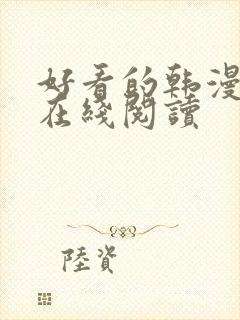 好看的韩漫
在綫閱讀
陸資